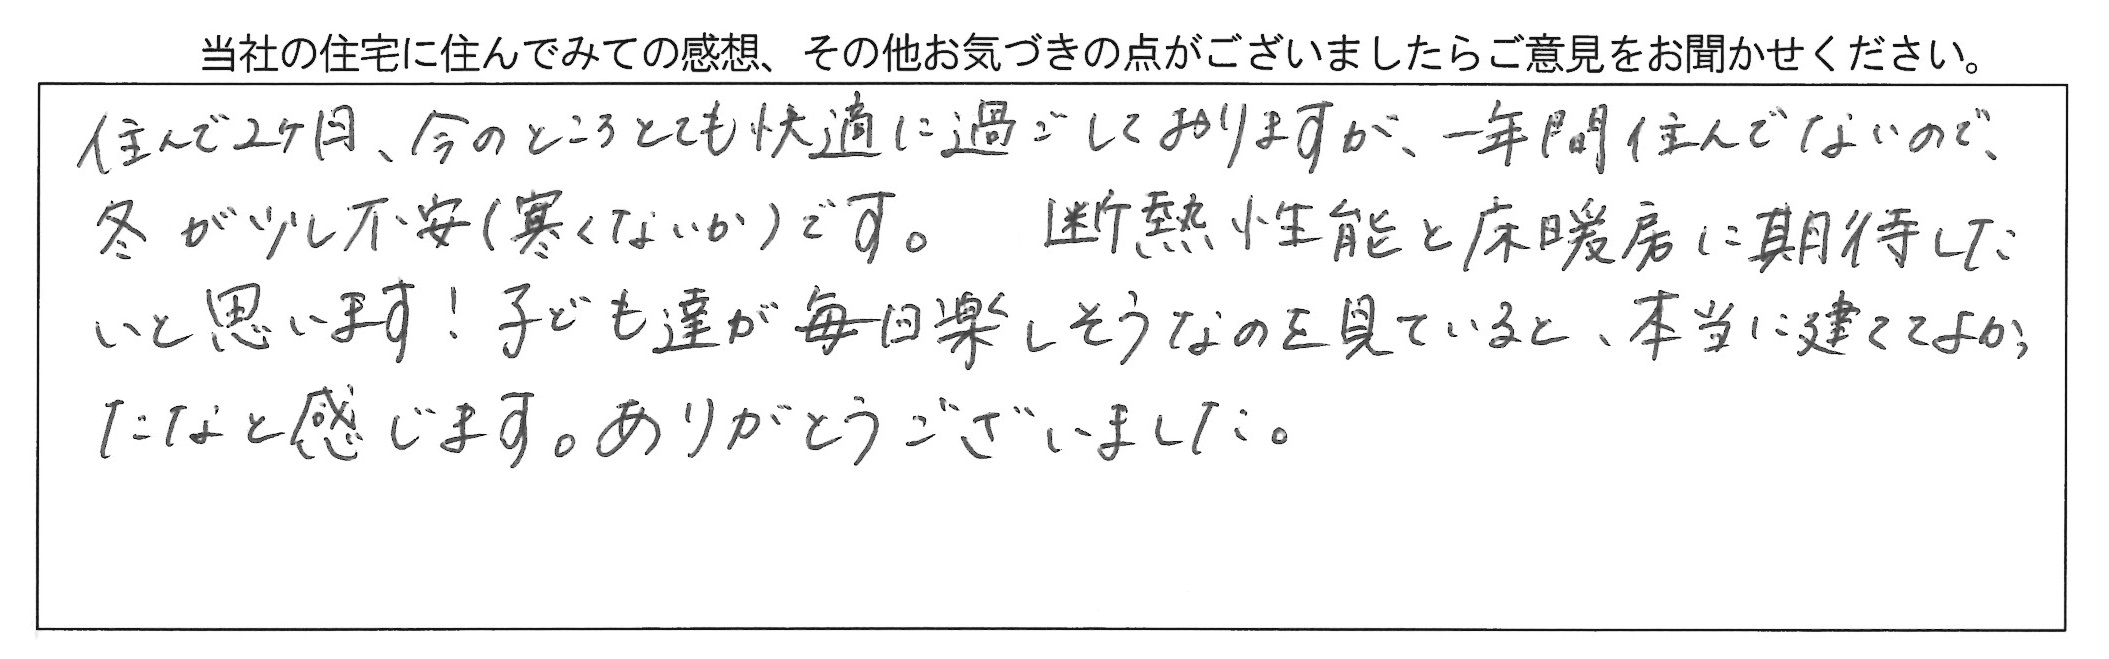 当社の住宅に住んでみての感想、その他お気づきの点がございましたらご意見をお聞かせください。
住んで2ヶ月、今のところとても快適に過ごしておりますが、一年間住んでないので、
冬が少し不安(寒くないか)です。 断熱性能と床暖房に期待した
いと思います!子ども達が毎日楽しそうなのを見ていると、本当に建ててよかっ
たなと感じます。ありがとうございました。